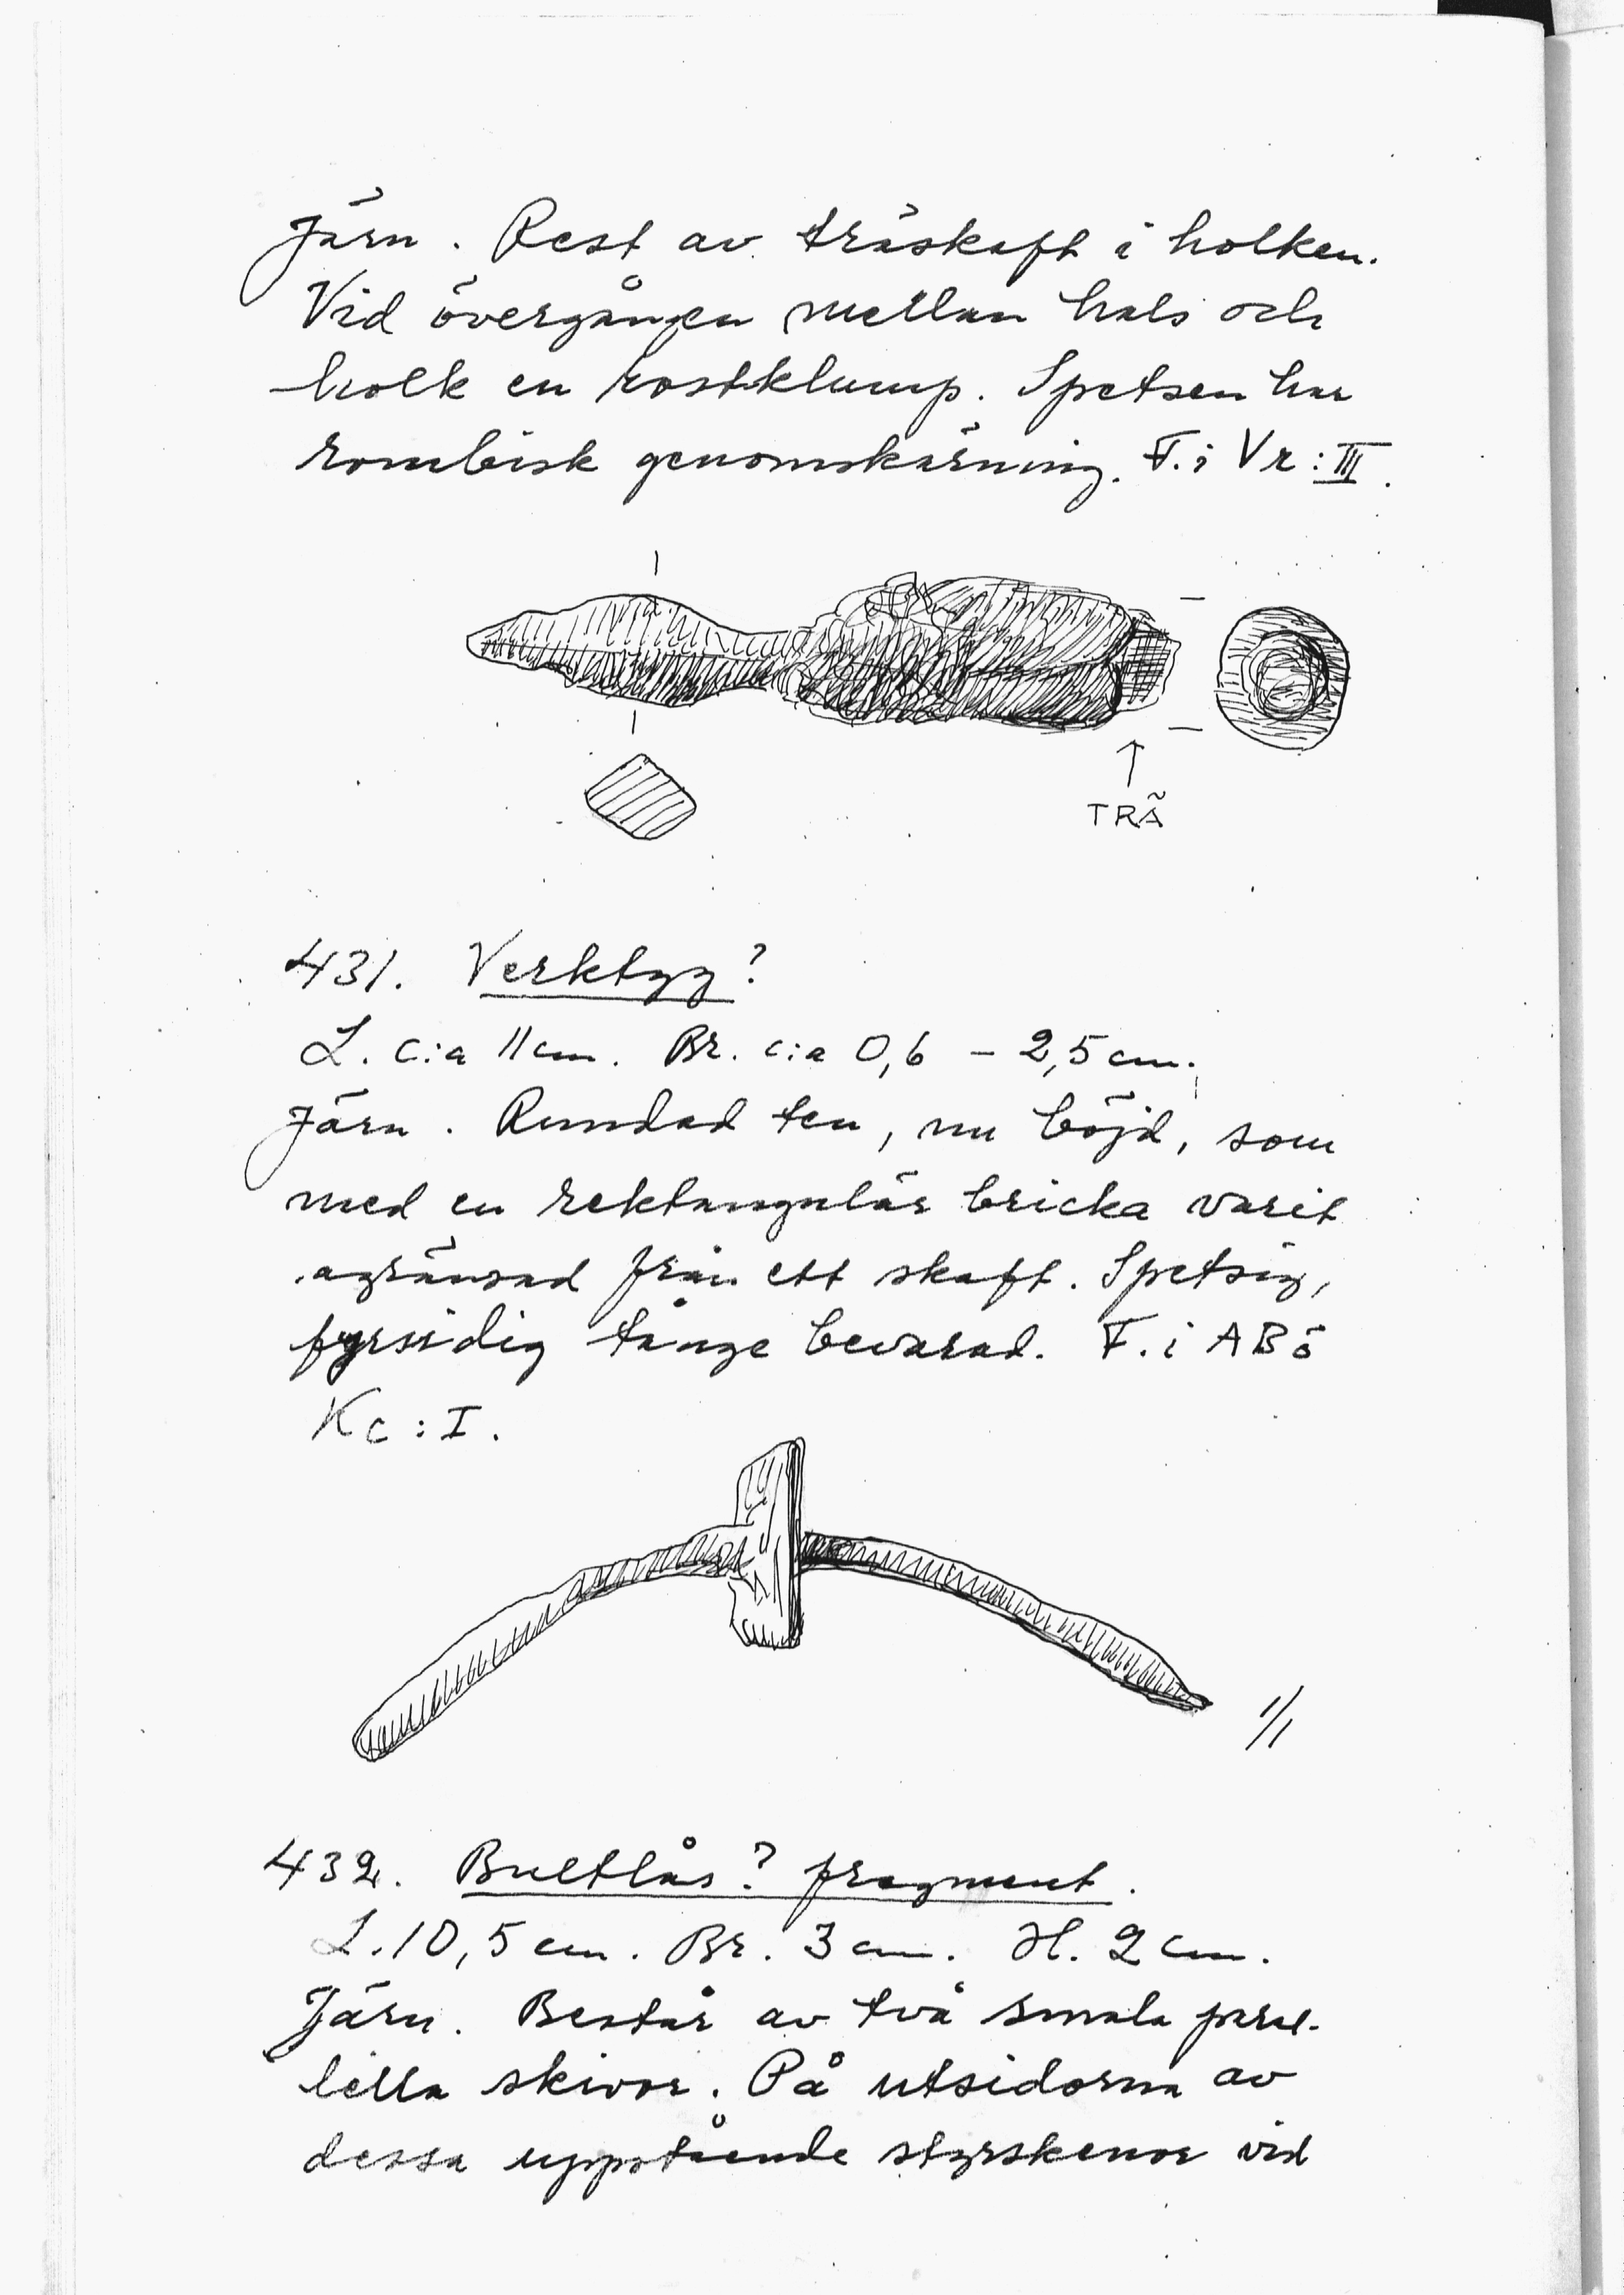 Järn. Rest av träskaft i holken.
Vid övergången mellan hals och
holk en rostklump. Spetsen har
rombisk genomskärning. F. i Vr:III.
TRÄ
431. Verktyg?
L. c:a 11 cm. Br. c:a 0,6 – 2,5 cm.
Järn. Rundad ten, nu böjd, som
med en rektangulär bricka varit
agränsad från ett skaft. Spetsig,
fyrsidig tånge bevarad. F. i ABö
Kc:I.
1/1
432. Bultlås? fragment.
L. 10,5 cm. Br. 3 cm. H. 2 cm.
Järn. Består av två smala paral-
lella skivor. På utsidorna av
dessa uppstående styrskenor vid